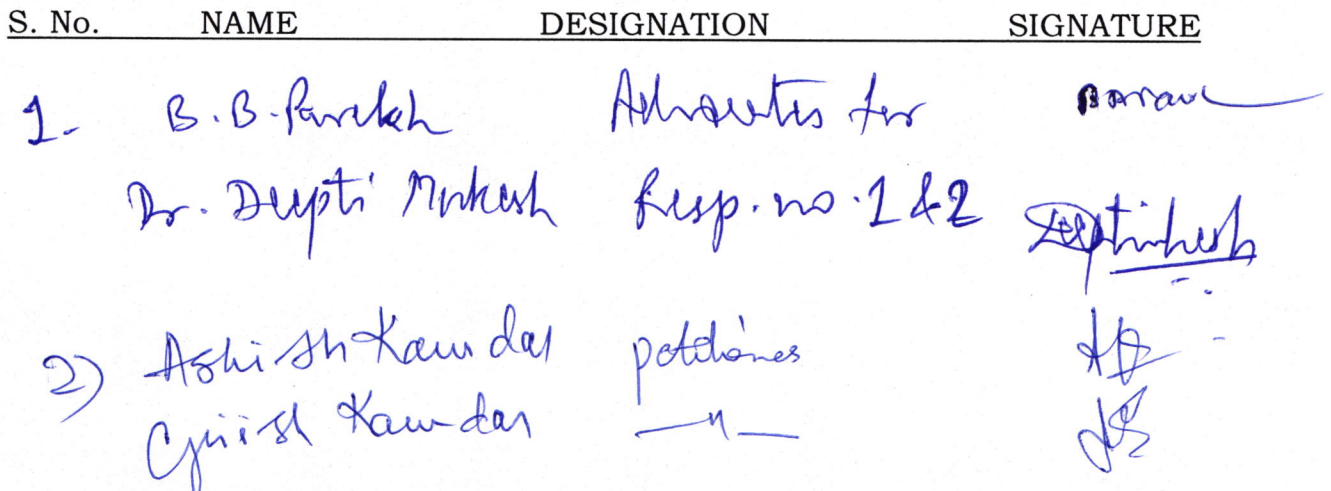 S. No. NAME DESIGNATION SIGNATURE
1. B. B. Parekh Advocates for
Dr. Deepti Mukesh Resp. no. 1 & 2
2) Ashish Kamdar petitioner
Girish Kamdar —"—